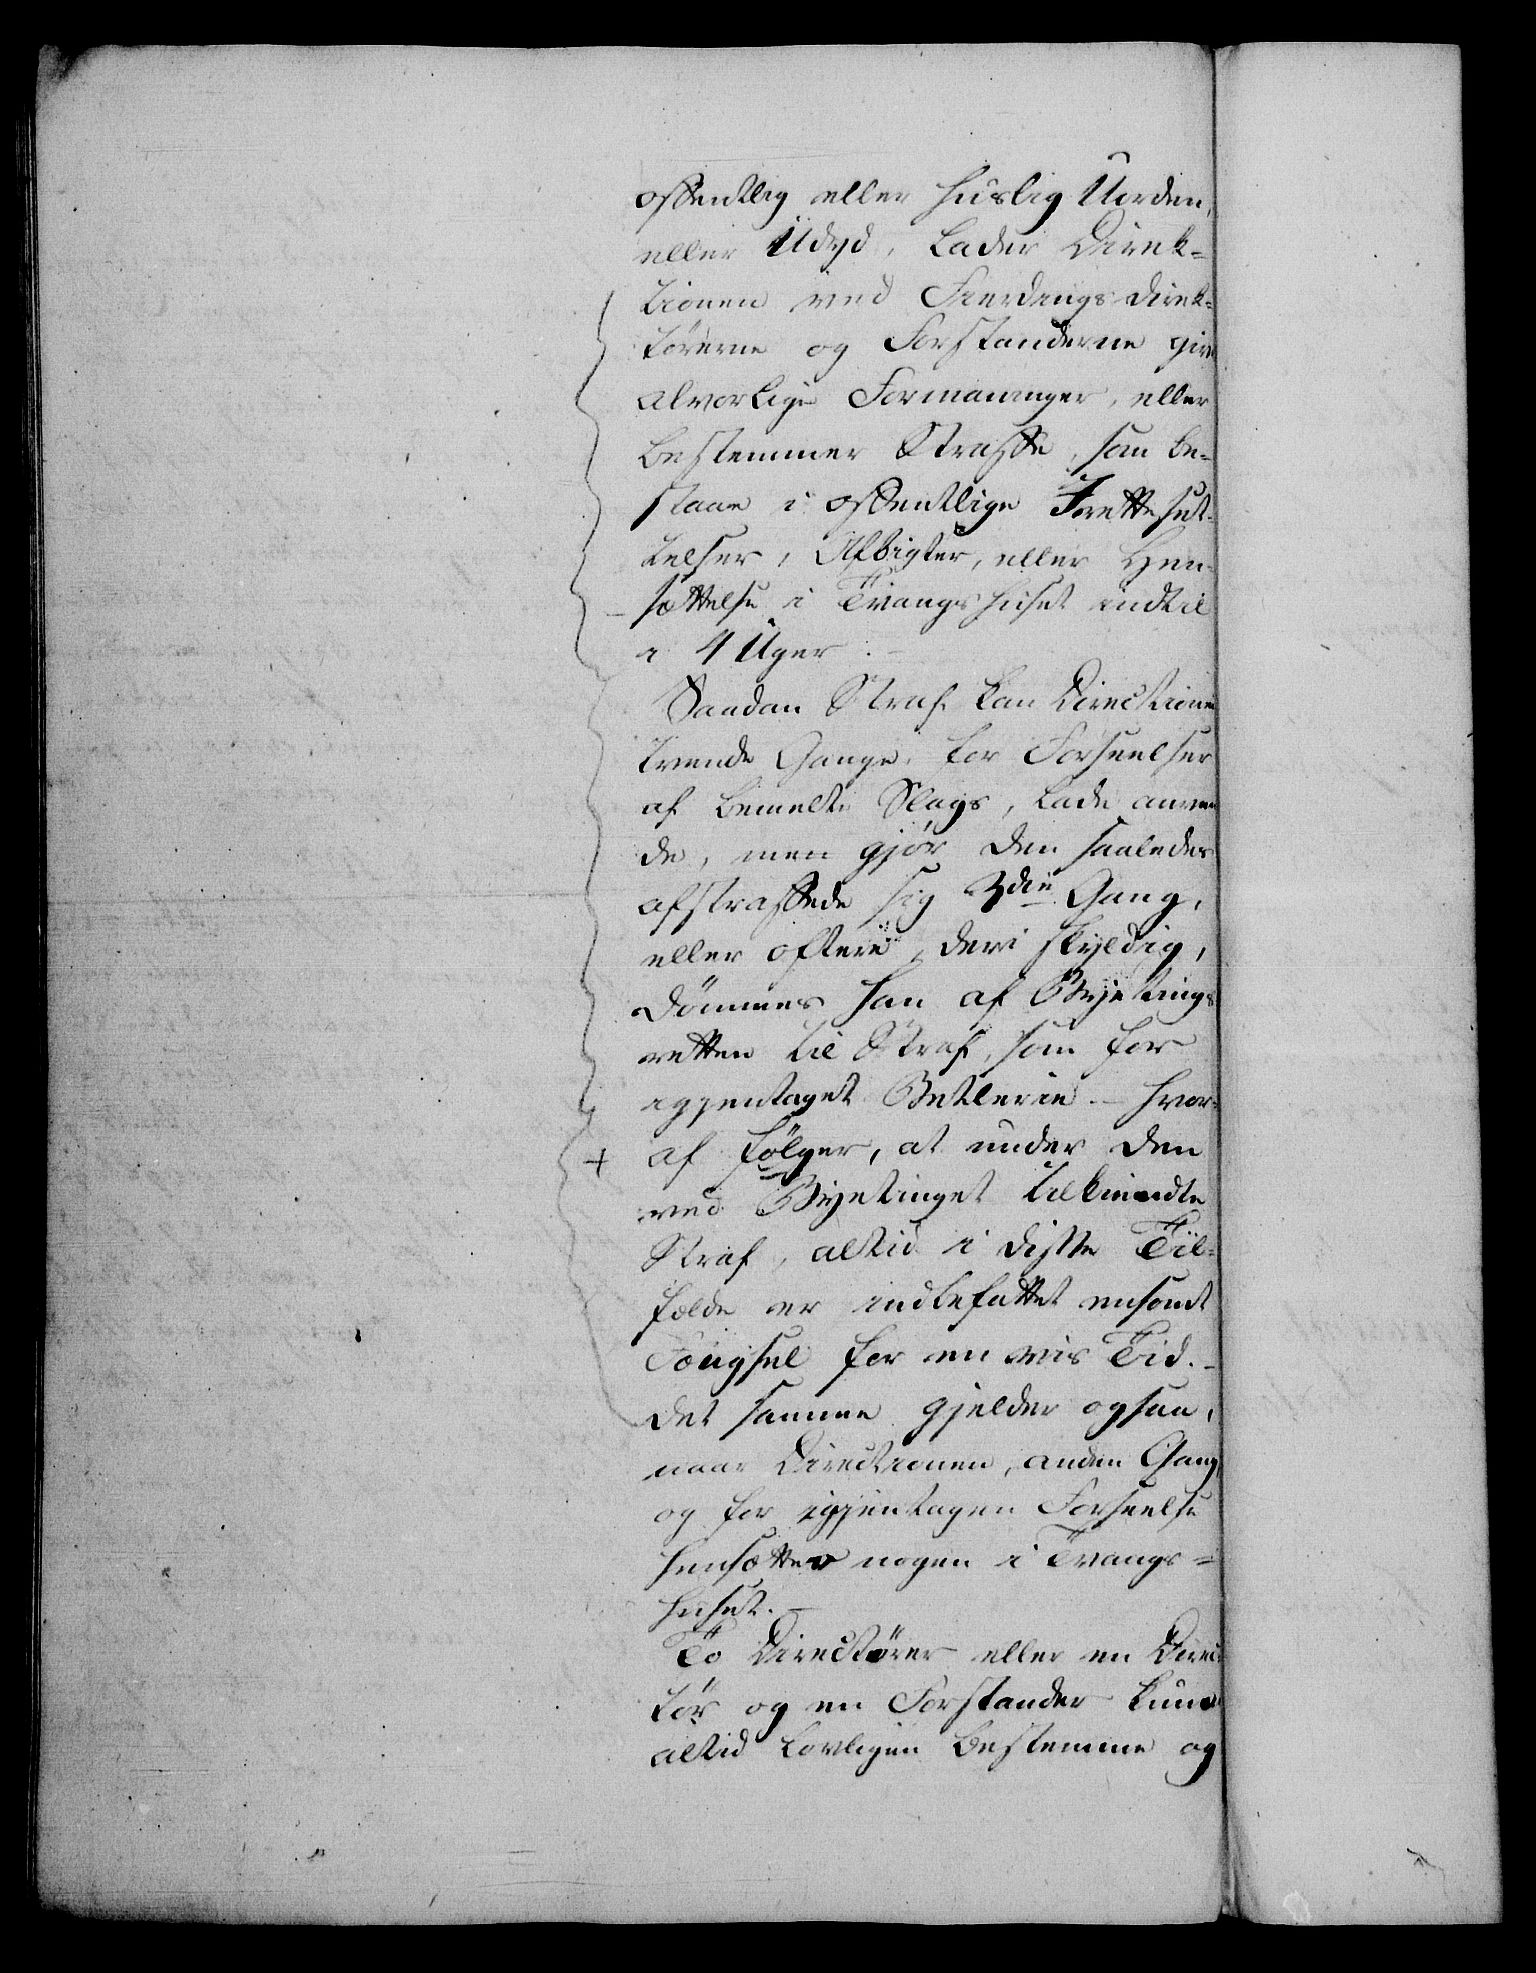 offentlig eller huslig Uorden,
eller Udyd, lader Direk-
tionen ved Fierdings Direk-
törerne og Forstanderne give
alvorlige Formaninger, eller
bestemmer Straffe, som be-
staae i offentlige Irettesæt-
telser, Afbigter, eller Hen-
sættelse i Tvangshuset indtil
i 4 Uger. -
Saadan Straf kan Directionen
tvende Gange, for Forseelser
af bemelte Slags, lade anven
de, men gjör den saaledes
afstraffede sig 3die Gang,
eller oftere, deri skyldig,
dömmes han af Byetings
retten til Straf, som for
igjentaget Betlerie. - hvor-
+ af fölger, at under den
ved Byetinget tilkiendte
Straf, altid i disse Til-
fælde er indbefattet ensomt
Fængsel for en vis Tid. -
Det samme gjelder ogsaa,
naar Directionen, anden Gang,
og for igjentagen Forseelse
hensætter nogen i Tvangs-
huset. -
To Directörer eller en Direc
tör og en Forstander kunne
altid lovligen bestemme og